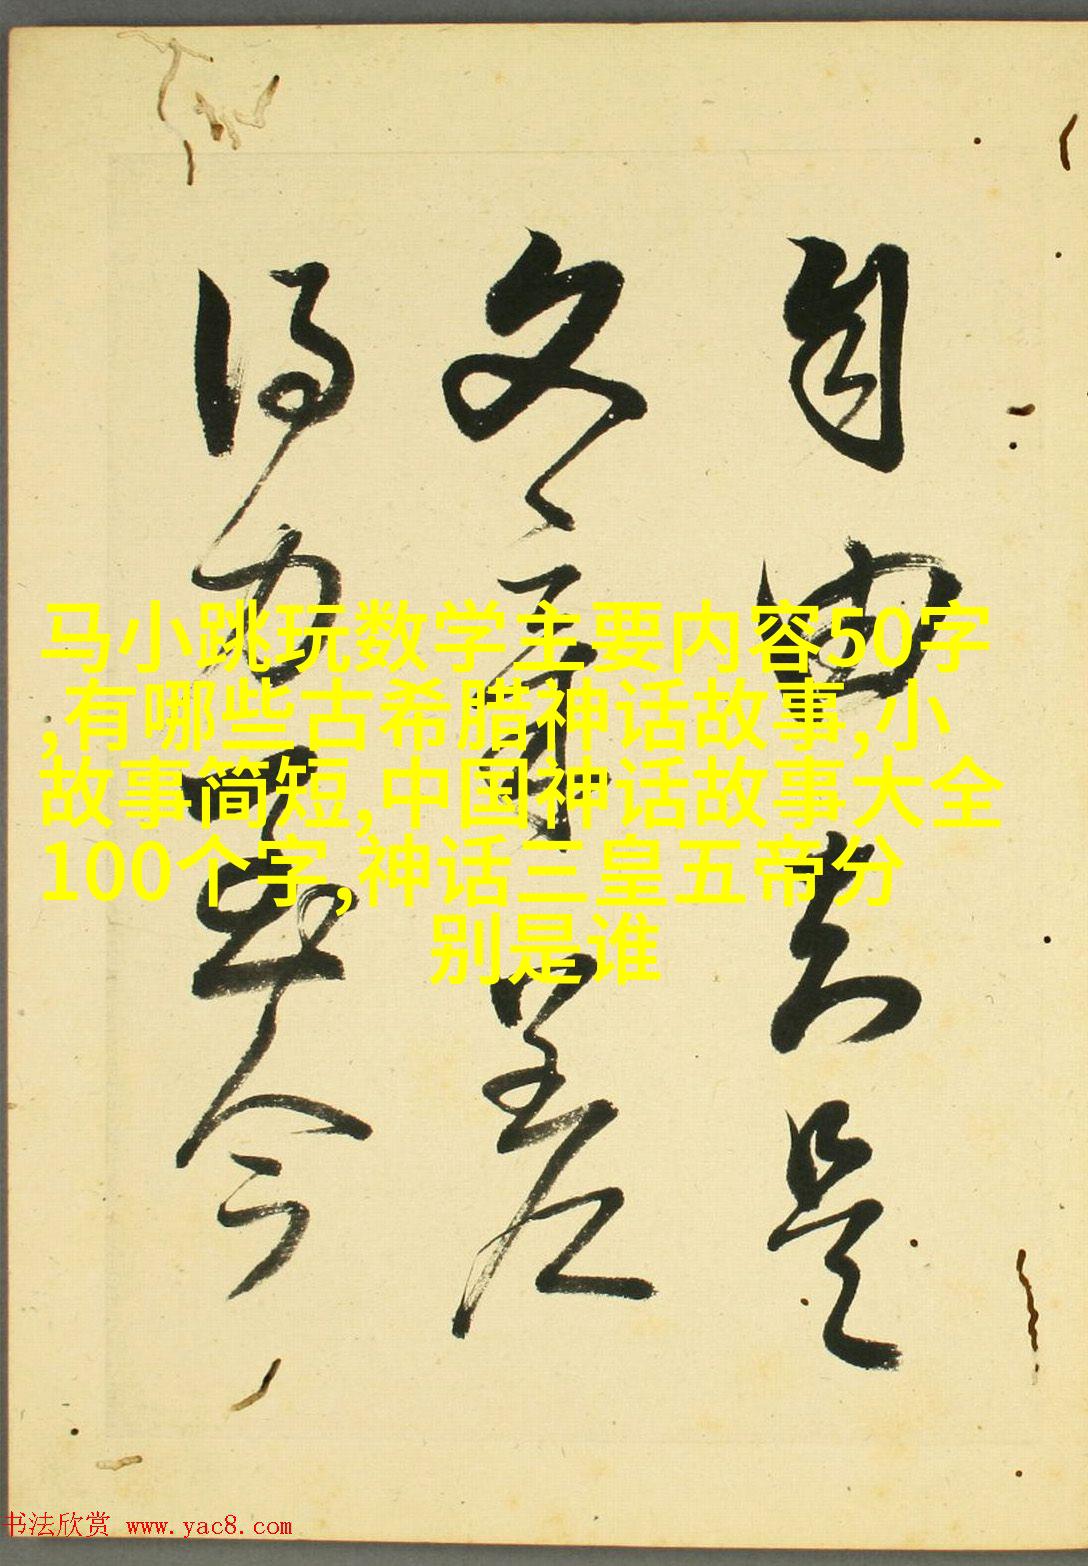 马小跳玩数学主要内容50字
,有哪些古希腊神话故事,小
故事简短,中国神话故事大全
100个字,神话三皇五帝分
别是谁
自由是
文章
得力今
书法欣赏 www.yac8.com